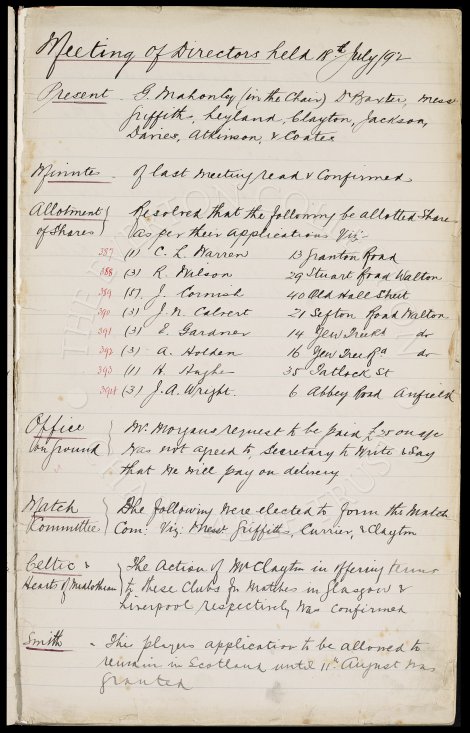 Meeting of Directors held 18th July/92
Present G. Mahon (in the Chair) Dr Baxter, Mess
Griffiths, Leyland, Clayton, Jackson,
Davies, Atkinson, & Coates
Minutes of last meeting read & Confirmed
Allotment Resolved that the following be allotted Shares
of Shares as per their applications Viz:-
387 (1) C. L. Warren 13 Granton Road
388 (3) R. Wilson 29 Stuart Road Walton
389 (5) J. Cornish 40 Old Hall Street
390 (3) J. N. Calvert 21 Sefton Road Walton
391 (3) E. Gardner 14 Yew Tree Rd do
392 (3) A. Holden 16 Yew Tree Rd do
393 (1) H. Hughes 35 Tatlock St
394 (3) J. A. Wright 6 Abbey Road Anfield
Office Mr Morgans request to be paid £35 on a/c
on ground was not agreed to, Secretary to write & say
that we will pay on delivery
Match The following were elected to form the Match
Committee Com: Viz: Messrs Griffiths, Currier, & Clayton
Celtic & The Action of Mr Clayton in offering terms
Heart of Midlothian to these Clubs for Matches in Glasgow &
Liverpool respectively was confirmed
Smith - This players application to be allowed to
remain in Scotland until 11th August was
granted